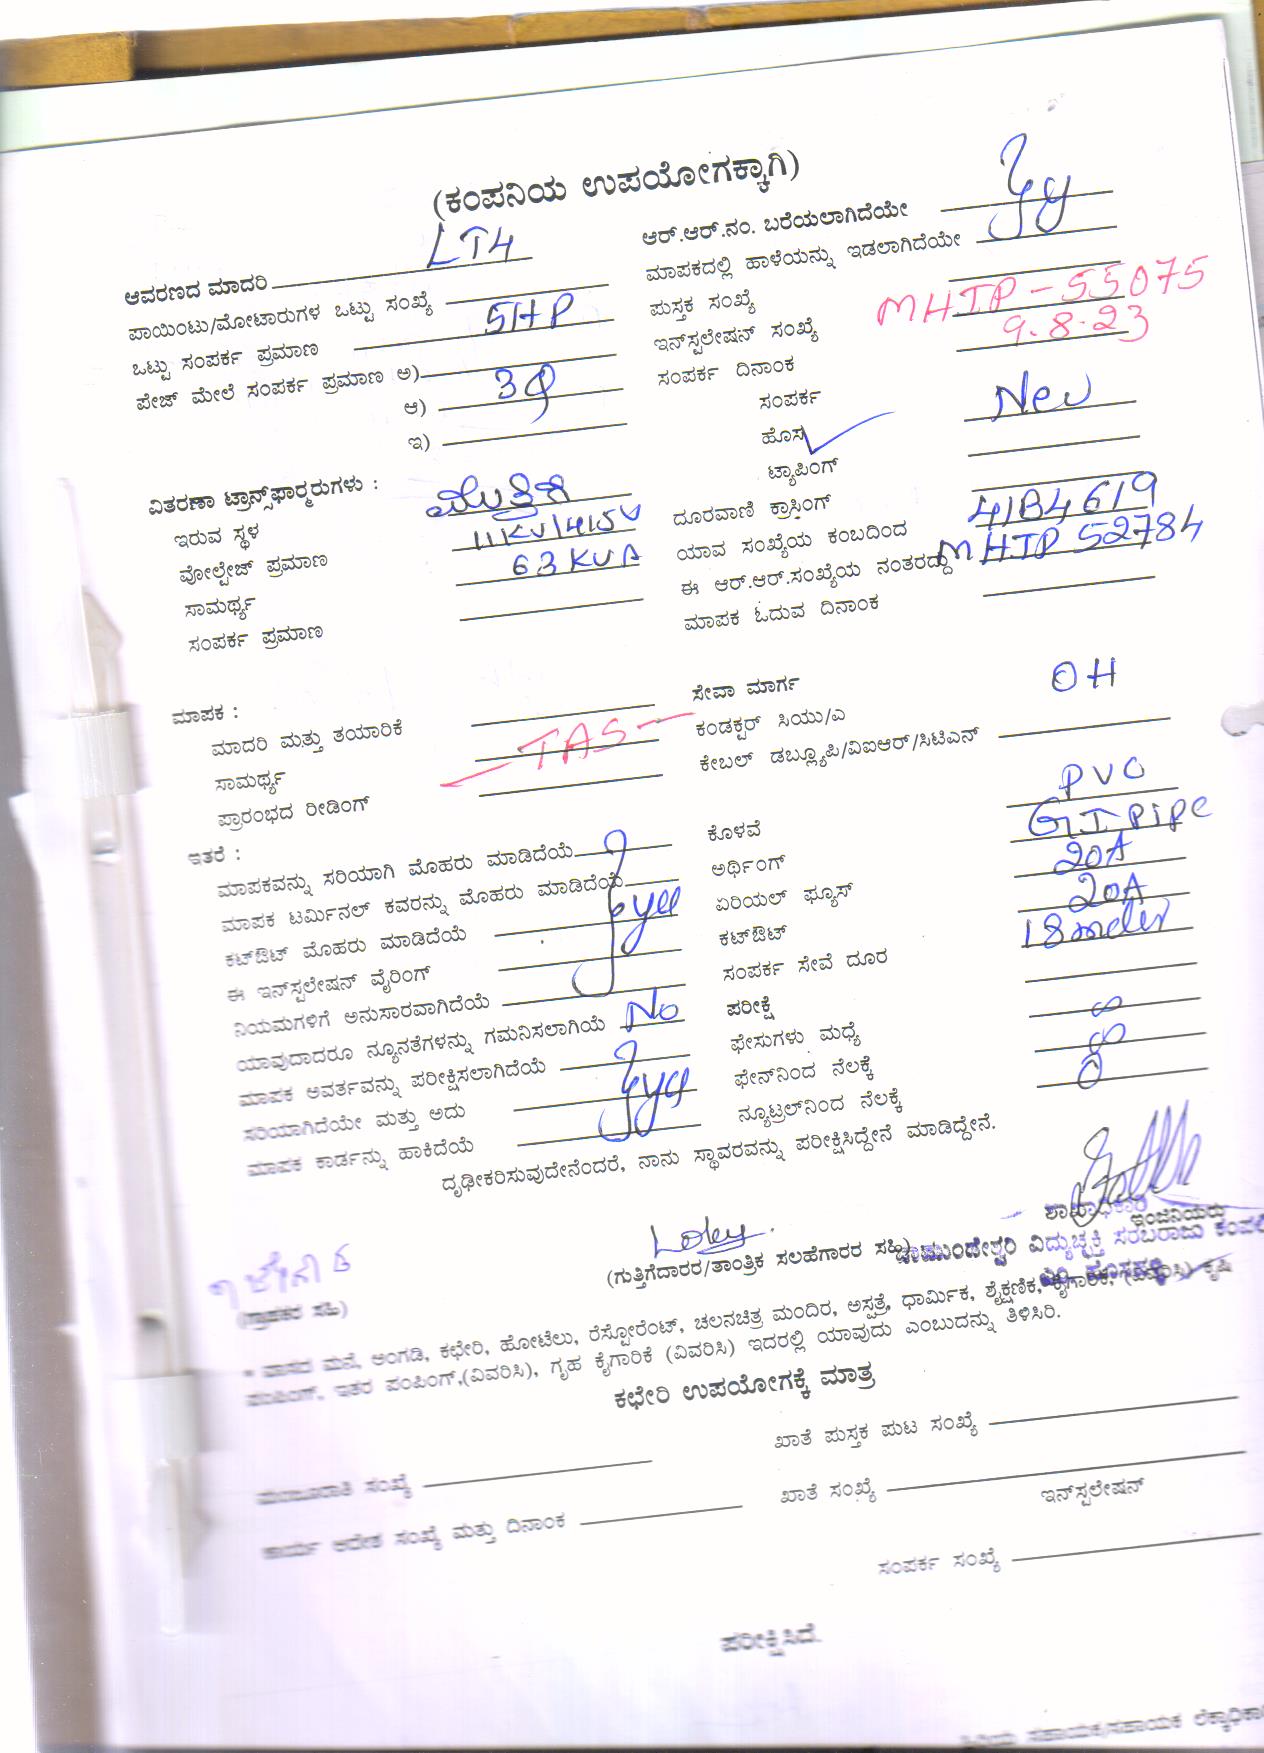 (ಕಂಪನಿಯ ಉಪಯೋಗಕ್ಕಾಗಿ)
ಆವರಣದ ಮಾದರಿ LT4
ಪಾಯಿಂಟು/ಮೋಟಾರುಗಳ ಒಟ್ಟು ಸಂಖ್ಯೆ
ಒಟ್ಟು ಸಂಪರ್ಕ ಪ್ರಮಾಣ 5HP
ಪೇಜ್ ಮೇಲೆ ಸಂಪರ್ಕ ಪ್ರಮಾಣ ಅ)
ಆ) 3φ
ಇ)
ಆರ್.ಆರ್.ನಂ. ಬರೆಯಲಾಗಿದೆಯೇ
ಮಾಪಕದಲ್ಲಿ ಹಾಳೆಯನ್ನು ಇಡಲಾಗಿದೆಯೇ
ಪುಸ್ತಕ ಸಂಖ್ಯೆ
ಇನ್‌ಸ್ಪಲೇಷನ್ ಸಂಖ್ಯೆ MHTP-55075
ಸಂಪರ್ಕ ದಿನಾಂಕ 9.8.23
ಸಂಪರ್ಕ
ಹೊಸ New
ಟ್ಯಾಪಿಂಗ್
ವಿತರಣಾ ಟ್ರಾನ್ಸ್‌ಫಾರ್‍ಮರುಗಳು :
ಇರುವ ಸ್ಥಳ
ವೋಲ್ಟೇಜ್ ಪ್ರಮಾಣ 11KV/415V
ಸಾಮರ್ಥ್ಯ 63KVA
ಸಂಪರ್ಕ ಪ್ರಮಾಣ
ದೂರವಾಣಿ ಕ್ರಾಸಿಂಗ್
ಯಾವ ಸಂಖ್ಯೆಯ ಕಂಬದಿಂದ 41B4619
ಈ ಆರ್.ಆರ್.ಸಂಖ್ಯೆಯ ನಂತರದ್ದು MHTP 52784
ಮಾಪಕ ಓದುವ ದಿನಾಂಕ
ಮಾಪಕ :
ಮಾದರಿ ಮತ್ತು ತಯಾರಿಕೆ
ಸಾಮರ್ಥ್ಯ TAS
ಪ್ರಾರಂಭದ ರೀಡಿಂಗ್
ಸೇವಾ ಮಾರ್ಗ OH
ಕಂಡಕ್ಟರ್ ಸಿಯು/ಎ
ಕೇಬಲ್ ಡಬ್ಲ್ಯೂಪಿ/ವಿಐಆರ್/ಸಿಟಿಎನ್
ಇತರೆ :
ಮಾಪಕವನ್ನು ಸರಿಯಾಗಿ ಮೊಹರು ಮಾಡಿದೆಯೆ
ಮಾಪಕ ಟರ್ಮಿನಲ್ ಕವರನ್ನು ಮೊಹರು ಮಾಡಿದೆಯೆ
ಕಟ್‌ಔಟ್ ಮೊಹರು ಮಾಡಿದೆಯೆ
ಈ ಇನ್‌ಸ್ಪಲೇಷನ್ ವೈರಿಂಗ್
ನಿಯಮಗಳಿಗೆ ಅನುಸಾರವಾಗಿದೆಯೆ
ಯಾವುದಾದರೂ ನ್ಯೂನತೆಗಳನ್ನು ಗಮನಿಸಲಾಗಿಯೆ No
ಮಾಪಕ ಅವರ್ತವನ್ನು ಪರೀಕ್ಷಿಸಲಾಗಿದೆಯೆ
ಸರಿಯಾಗಿದೆಯೇ ಮತ್ತು ಅದು
ಮಾಪಕ ಕಾರ್ಡನ್ನು ಹಾಕಿದೆಯೆ
ಕೊಳವೆ PVC
ಅರ್ಥಿಂಗ್ GI Pipe
ಏರಿಯಲ್ ಫ್ಯೂಸ್ 20A
ಕಟ್‌ಔಟ್ 20A
ಸಂಪರ್ಕ ಸೇವೆ ದೂರ 18 meter
ಪರೀಕ್ಷೆ
ಫೇಸುಗಳು ಮಧ್ಯೆ ∞
ಫೇನ್‌ನಿಂದ ನೆಲಕ್ಕೆ ∞
ನ್ಯೂಟ್ರಲ್‌ನಿಂದ ನೆಲಕ್ಕೆ
ದೃಢೀಕರಿಸುವುದೇನೆಂದರೆ, ನಾನು ಸ್ಥಾವರವನ್ನು ಪರೀಕ್ಷಿಸಿದ್ದೇನೆ ಮಾಡಿದ್ದೇನೆ.
ಶಾಖಾಧಿಕಾರಿ
ಇಂಜಿನಿಯರು
(ಗ್ರಾಹಕರ ಸಹಿ)
(ಗುತ್ತಿಗೆದಾರರ/ತಾಂತ್ರಿಕ ಸಲಹೆಗಾರರ ಸಹಿ)
ಚಾಮುಂಡೇಶ್ವರಿ ವಿದ್ಯುಚ್ಛಕ್ತಿ ಸರಬರಾಜು
* ವಾಸದ ಮನೆ, ಅಂಗಡಿ, ಕಛೇರಿ, ಹೋಟೆಲು, ರೆಸ್ಟೋರೆಂಟ್, ಚಲನಚಿತ್ರ ಮಂದಿರ, ಅಸ್ಪತ್ರೆ, ಧಾರ್ಮಿಕ, ಶೈಕ್ಷಣಿಕ, ಕೈಗಾರಿಕೆ, (ವಿವರಿಸಿ) ಕೃಷಿ
ಪಂಪಿಂಗ್, ಇತರ ಪಂಪಿಂಗ್,(ವಿವರಿಸಿ), ಗೃಹ ಕೈಗಾರಿಕೆ (ವಿವರಿಸಿ) ಇದರಲ್ಲಿ ಯಾವುದು ಎಂಬುದನ್ನು ತಿಳಿಸಿರಿ.
ಕಛೇರಿ ಉಪಯೋಗಕ್ಕೆ ಮಾತ್ರ
ಮಂಜೂರಾತಿ ಸಂಖ್ಯೆ
ಖಾತೆ ಪುಸ್ತಕ ಪುಟ ಸಂಖ್ಯೆ
ಕಾರ್ಯ ಆದೇಶ ಸಂಖ್ಯೆ ಮತ್ತು ದಿನಾಂಕ
ಖಾತೆ ಸಂಖ್ಯೆ
ಇನ್‌ಸ್ಪಲೇಷನ್
ಸಂಪರ್ಕ ಸಂಖ್ಯೆ
ಪರೀಕ್ಷಿಸಿದೆ.
ಹಿರಿಯ ಸಹಾಯಕ/ಸಹಾಯಕ